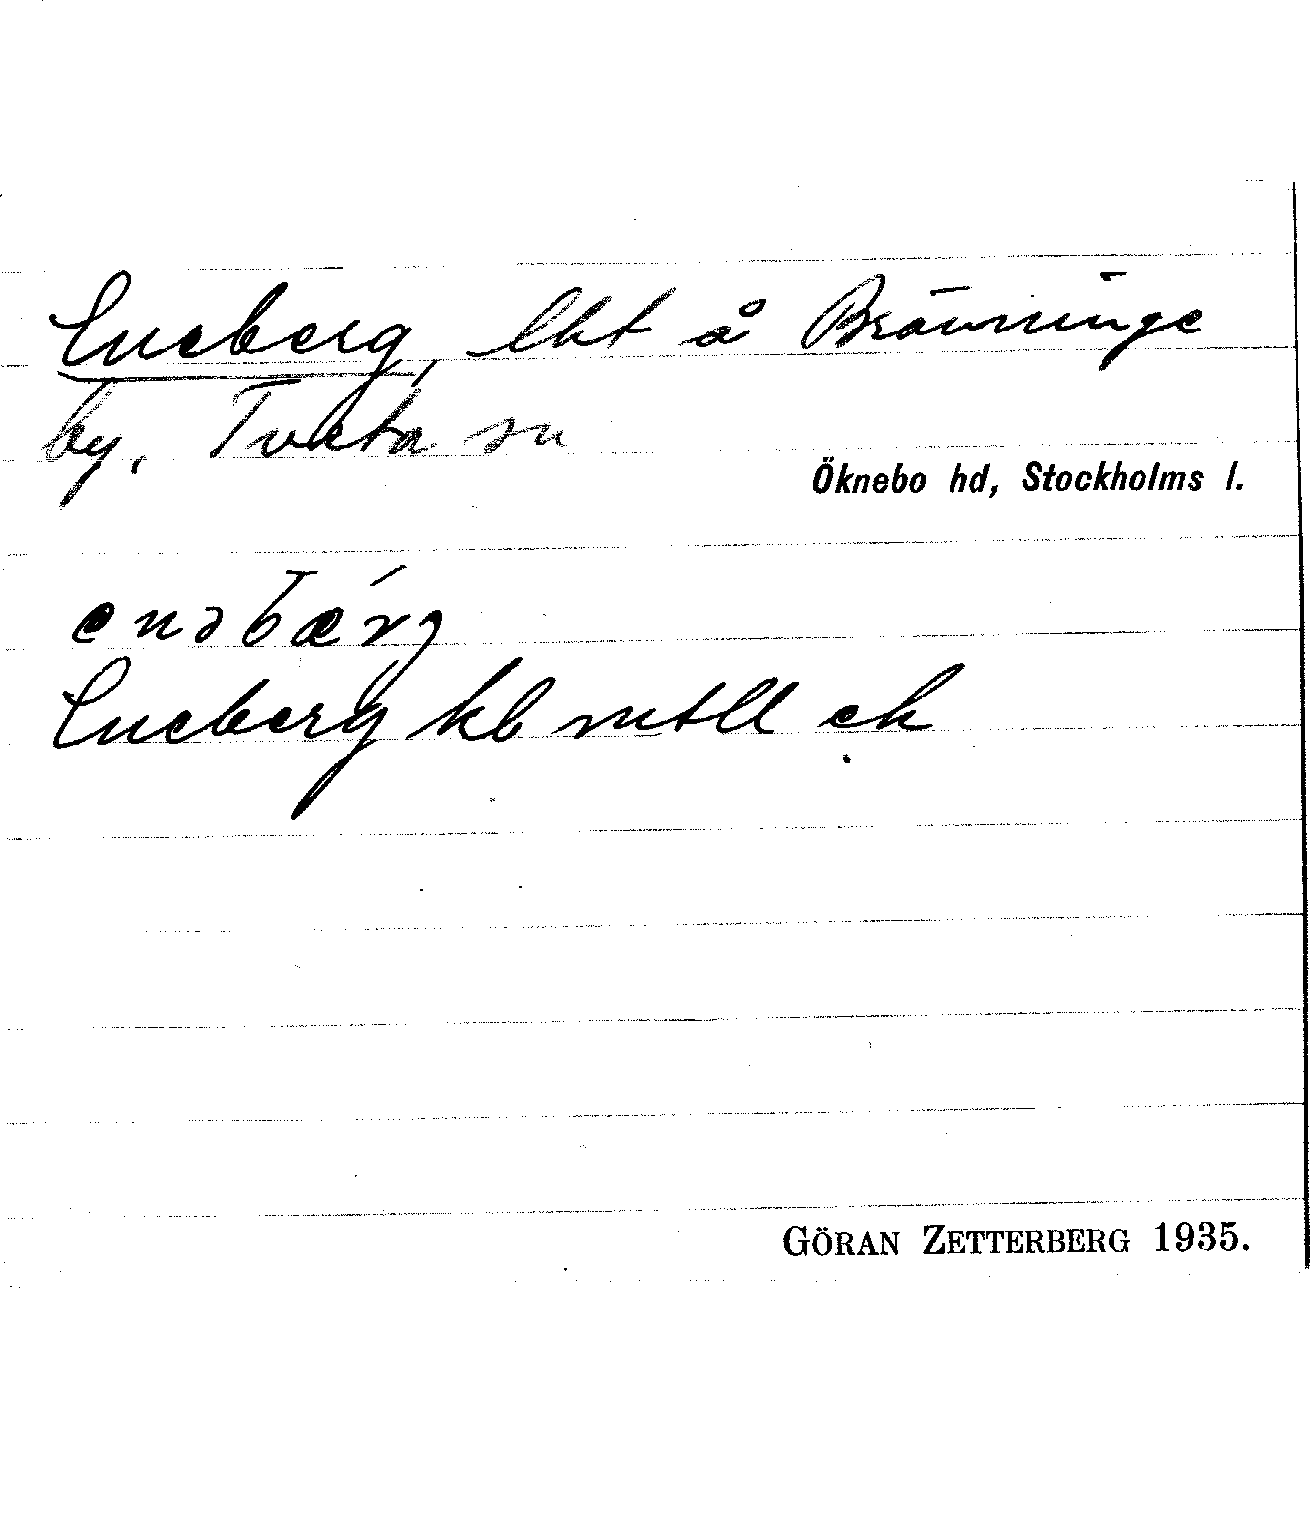 Eneberg, lht å Brävninge
by, Tveta sn
Öknebo hd, Stockholms l.
enəbæ´rj
Eneberg kb mtll ek
GÖRAN ZETTERBERG 1935.